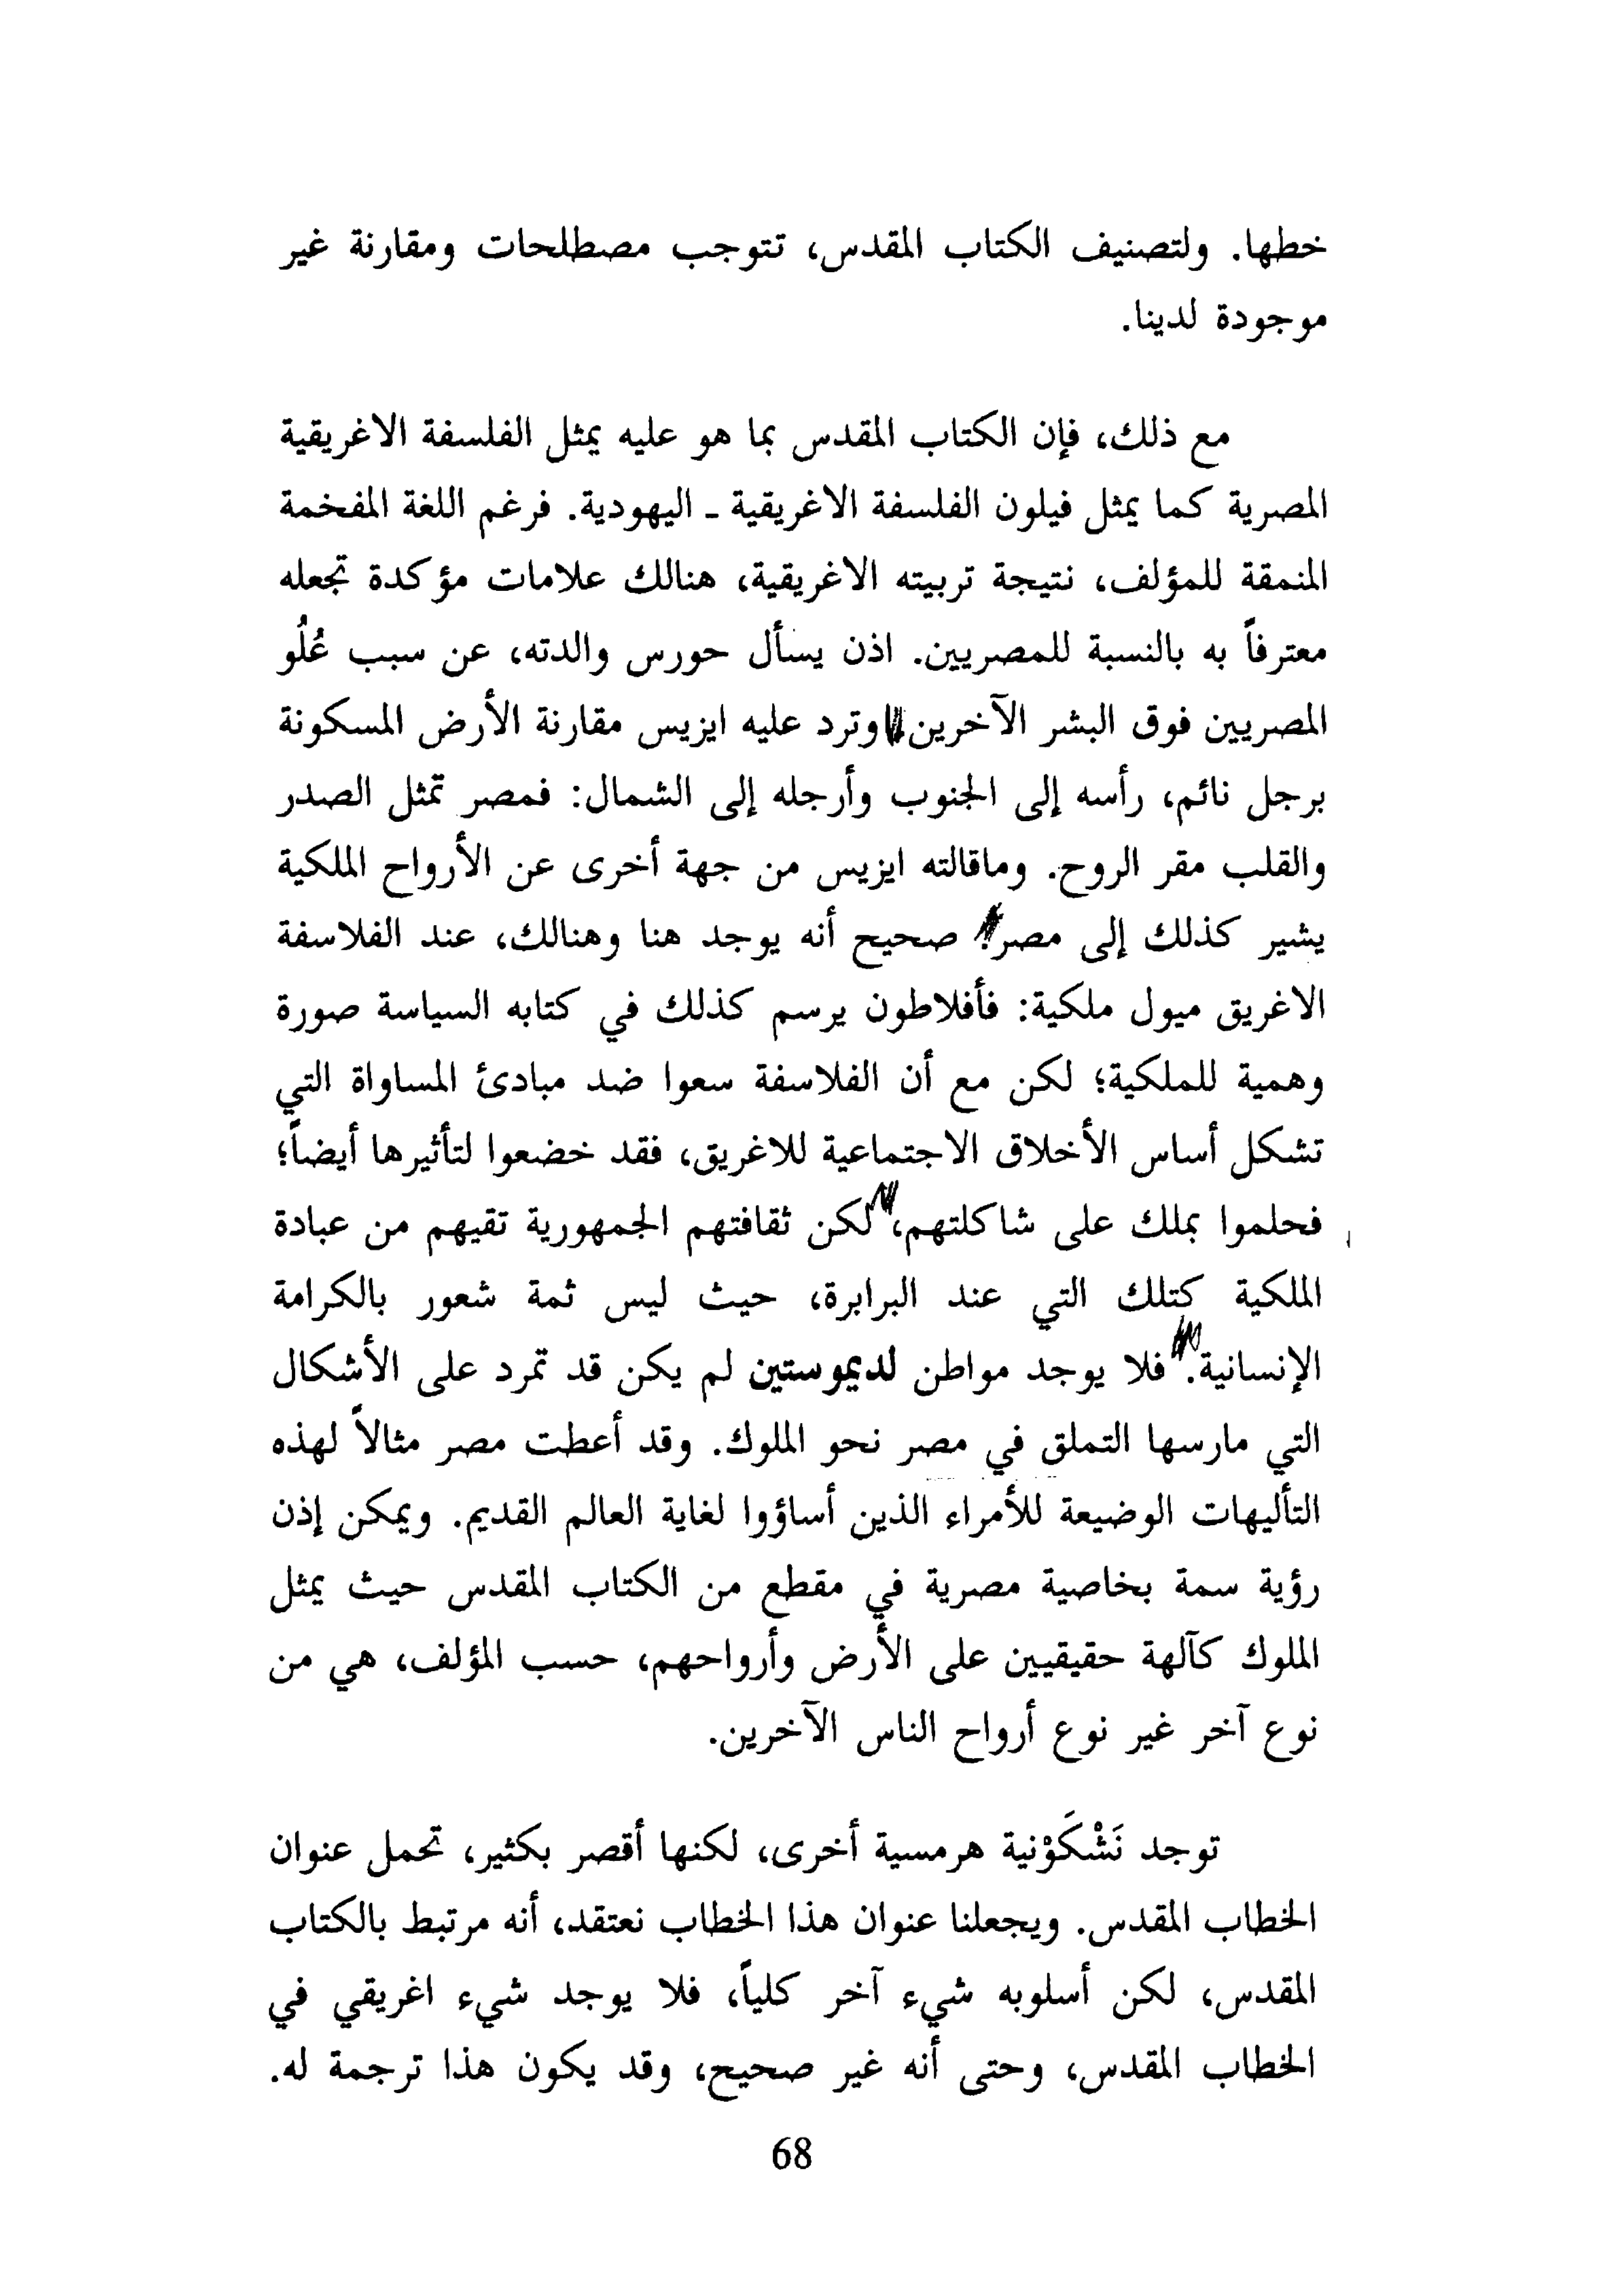 خطها. ولتصنيف الكتاب المقدس، تتوجب مصطلحات ومقارنة غير
موجودة لدينا.
مع ذلك، فإن الكتاب المقدس بما هو عليه يمثل الفلسفة الاغريقية
المصرية كما يمثل فيلون الفلسفة الاغريقية - اليهودية. فرغم اللغة المفخمة
المنمقة للمؤلف، نتيجة تربيته الاغريقية، هنالك علامات مؤكدة تجعله
معترفاً به بالنسبة للمصريين. اذن يسأل حورس والدته، عن سبب عُلُو
المصريين فوق البشر الآخرين. وترد عليه ايزيس مقارنة الأرض المسكونة
برجل نائم، رأسه إلى الجنوب وأرجله إلى الشمال: فمصر تمثل الصدر
والقلب مقر الروح. وماقالته ايزيس من جهة أخرى عن الأرواح الملكية
يشير كذلك إلى مصر؛ صحيح أنه يوجد هنا وهنالك، عند الفلاسفة
الاغريق ميول ملكية: فأفلاطون يرسم كذلك في كتابه السياسة صورة
وهمية للملكية؛ لكن مع أن الفلاسفة سعوا ضد مبادئ المساواة التي
تشكل أساس الأخلاق الاجتماعية للاغريق، فقد خضعوا لتأثيرها أيضاً؛
فحلموا بملك على شاكلتهم، لكن ثقافتهم الجمهورية تقيهم من عبادة
الملكية كتلك التي عند البرابرة، حيث ليس ثمة شعور بالكرامة
الإنسانية. فلا يوجد مواطن لديموستين لم يكن قد تمرد على الأشكال
التي مارسها التملق في مصر نحو الملوك. وقد أعطت مصر مثالاً لهذه
التأليهات الوضيعة للأمراء الذين أساؤوا لغاية العالم القديم. ويمكن إذن
رؤية سمة بخاصية مصرية في مقطع من الكتاب المقدس حيث يمثل
الملوك كآلهة حقيقيين على الأرض وأرواحهم، حسب المؤلف، هي من
نوع آخر غير نوع أرواح الناس الآخرين.
توجد نَشْكَوْنية هرمسية أخرى، لكنها أقصر بكثير، تحمل عنوان
الخطاب المقدس. ويجعلنا عنوان هذا الخطاب نعتقد، أنه مرتبط بالكتاب
المقدس، لكن أسلوبه شيء آخر كلياً، فلا يوجد شيء اغريقي في
الخطاب المقدس، وحتى أنه غير صحيح، وقد يكون هذا ترجمة له.
68